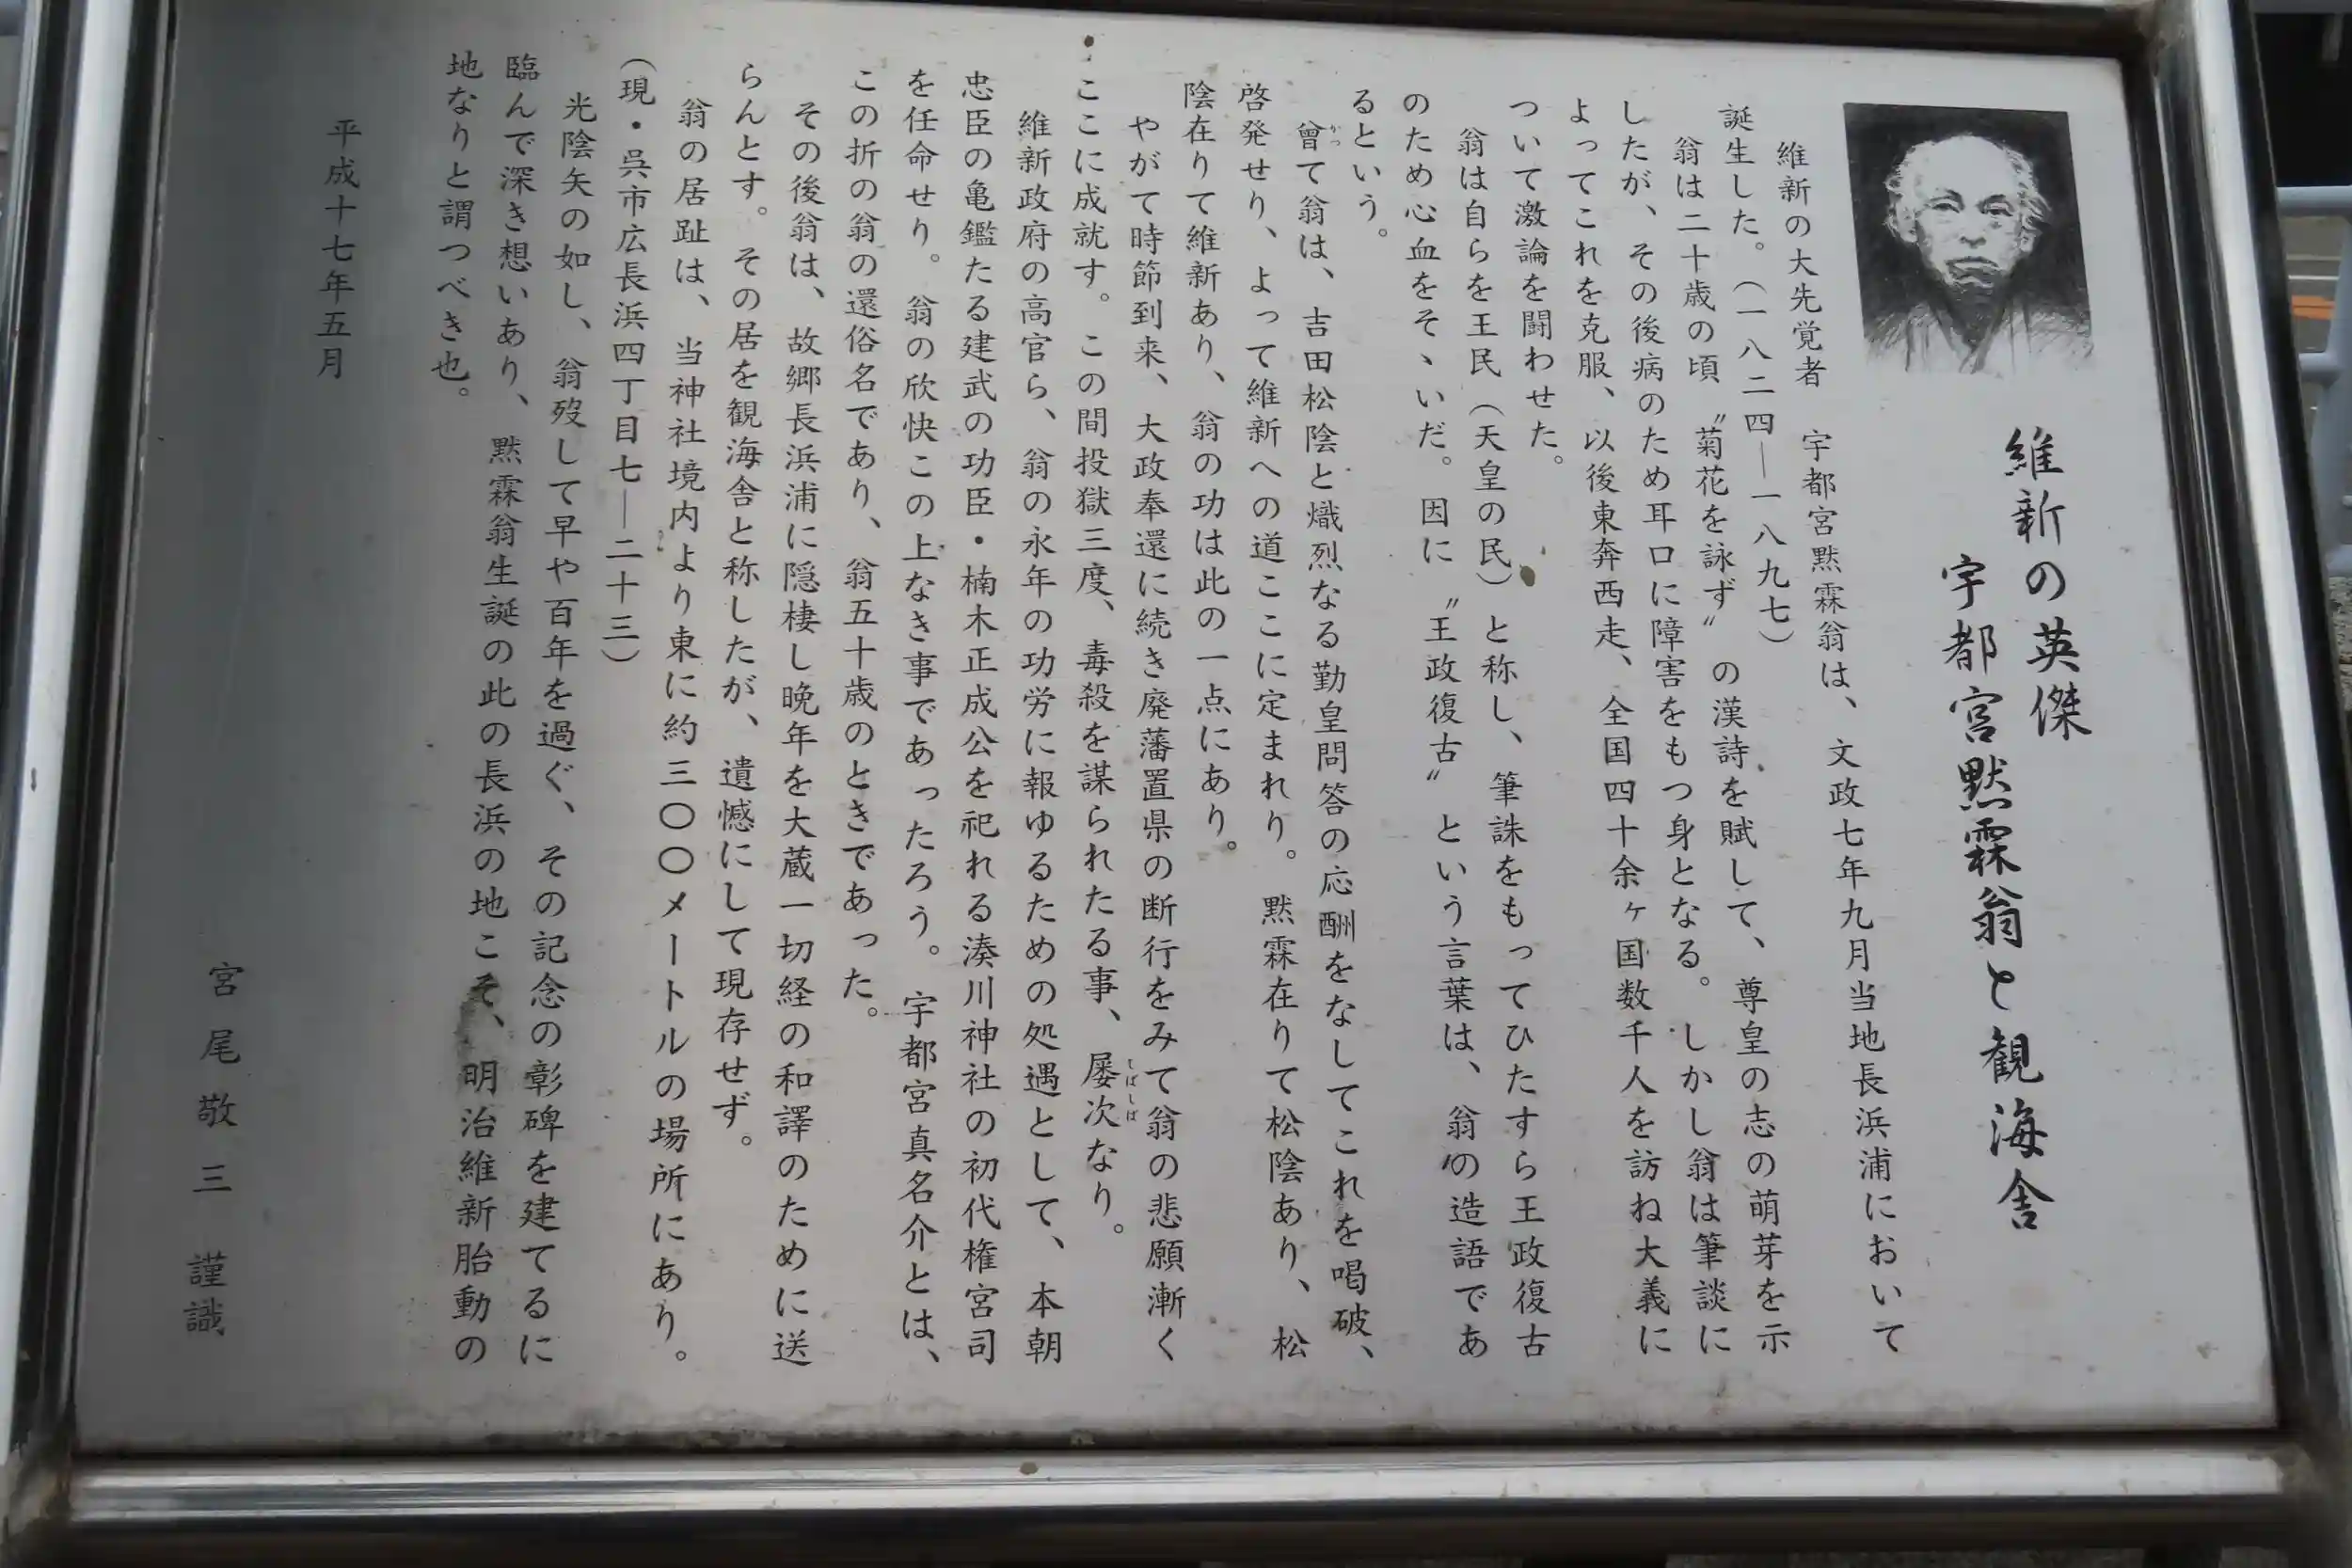 維新の英傑
宇都宮黙霖翁と観海舎
維新の大先覚者　宇都宮黙霖翁は、文政七年九月当地長浜浦において
誕生した。（一八二四―一八九七）
翁は二十歳の頃〝菊花を詠ず〟の漢詩を賦して、尊皇の志の萌芽を示
したが、その後病のため耳口に障害をもつ身となる。しかし翁は筆談に
よってこれを克服、以後東奔西走、全国四十余ヶ国数千人を訪ね大義に
ついて激論を闘わせた。
翁は自らを王民（天皇の民）と称し、筆誅をもってひたすら王政復古
のため心血をそゝいだ。因に〝王政復古〟という言葉は、翁の造語であ
るという。
曾て翁は、吉田松陰と熾烈なる勤皇問答の応酬をなしてこれを喝破、
啓発せり、よって維新への道ここに定まれり。黙霖在りて松陰あり、松
陰在りて維新あり、翁の功は此の一点にあり。
やがて時節到来、大政奉還に続き廃藩置県の断行をみて翁の悲願漸く
ここに成就す。この間投獄三度、毒殺を謀られたる事、屡次なり。
維新政府の高官ら、翁の永年の功労に報ゆるための処遇として、本朝
忠臣の亀鑑たる建武の功臣・楠木正成公を祀れる湊川神社の初代権宮司
を任命せり。翁の欣快この上なき事であったろう。宇都宮真名介とは、
この折の翁の還俗名であり、翁五十歳のときであった。
その後翁は、故郷長浜浦に隠棲し晩年を大蔵一切経の和譯のために送
らんとす。その居を観海舎と称したが、遺憾にして現存せず。
翁の居趾は、当神社境内より東に約三〇〇メートルの場所にあり。
（現・呉市広長浜四丁目七―二十三）
光陰矢の如し、翁歿して早や百年を過ぐ、その記念の彰碑を建てるに
臨んで深き想いあり、黙霖翁生誕の此の長浜の地こそ、明治維新胎動の
地なりと謂つべき也。
平成十七年五月
宮尾敬三　謹識